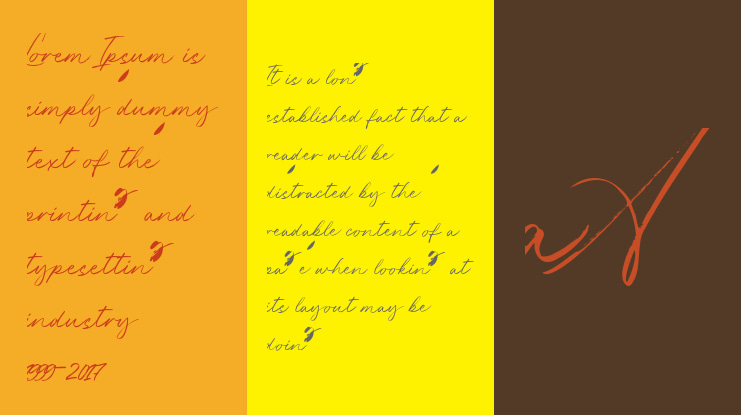 Lorem Ipsum is
simply dummy
text of the
printing and
typesetting
industry
1999-2017
It is a long
established fact that a
reader will be
distracted by the
readable content of a
page when looking at
its layout may be
doing
a A